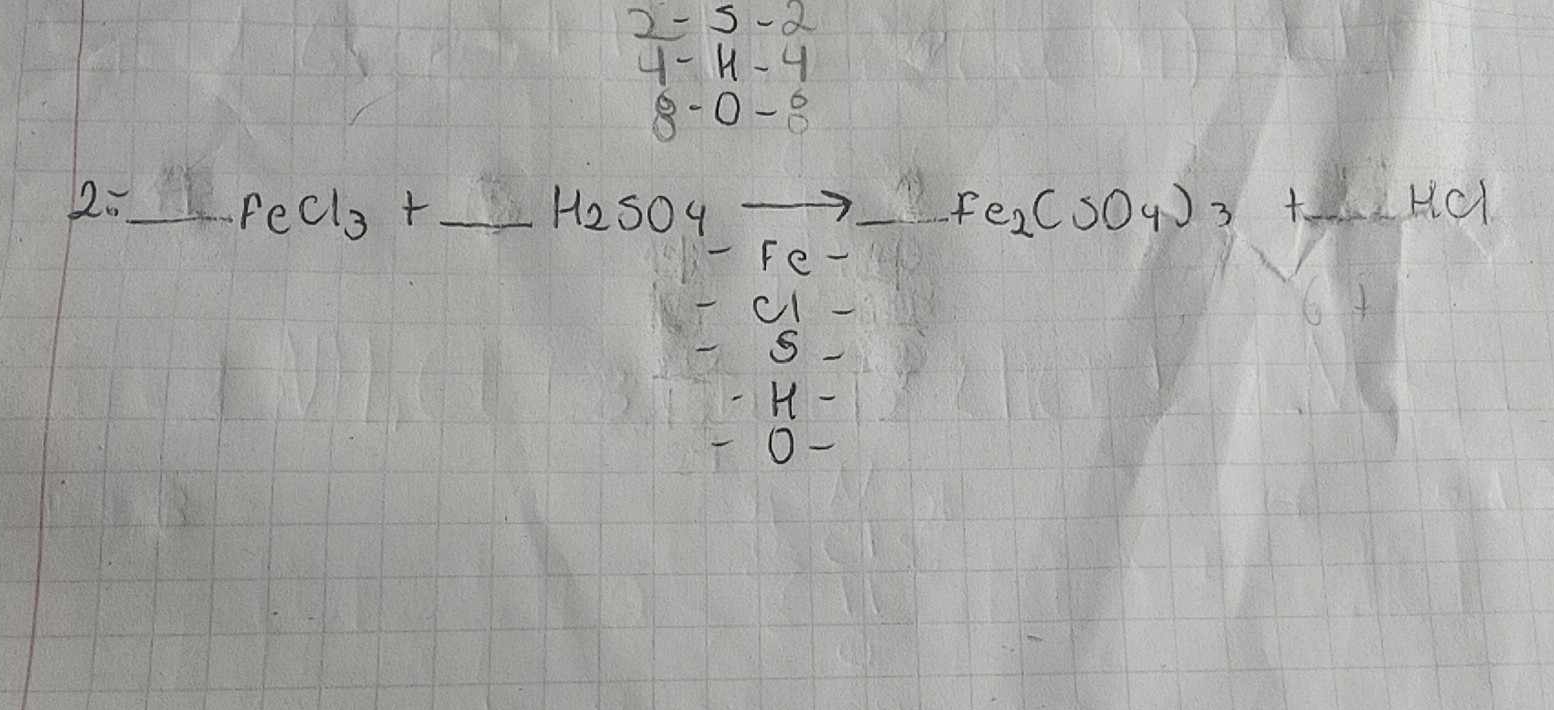 2 - S - 2
4 - H - 4
8 - O - 8
2:- ___ FeCl3 + ___ H2SO4 → ___ Fe2(SO4)3 + ___ HCl
- Fe -
- Cl -
- S -
- H -
- O -